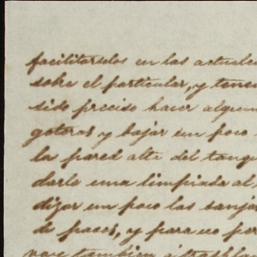 facilitarselos en las actuale
sobre el particular, y tene
sido preciso hacer algun
goteras y bajar un poco
la pared alta del tanqu
darle una limpiada al
dizar un poco las zanja
de pasos, y para no per